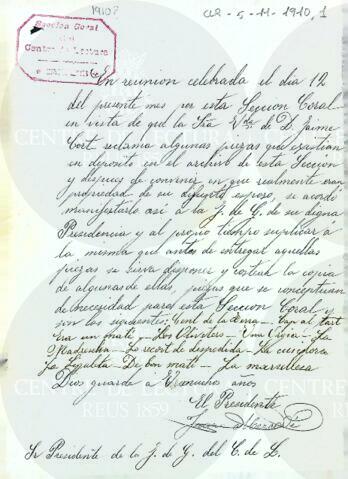 1910?
CLR-5-11-1910,1
Seccion Coral
del
Centro de Lectura
En reunion celebrada el dia 12
del presente mes por esta Seccion Coral
en vista de que la Sra Vda de D. Jaime
Cort reclama algunas piezas que existian
en deposito en el archivo de esta Seccion
y despues de convenir en que realmente eran
propiedad de su difunto esposo, se acordó
manifestarlo asi à la J. de G. de su digna
Presidencia y al propio tiempo suplicar à
la misma que antes de entregar aquellas
piezas se sirva disponer y costear la copia
de algunas de ellas, piezas que se conceptuan
de necesidad para esta Seccion Coral y
son las siguientes: Cant de la Terra - Cap al tart
Era un matí - Los - Una
La - Lo recort de despedida - La
La - De bon matí - La marsellesa
Dios guarde a V. muchos años
El Presidente
Sr Presidente de la J. de G. del C. de L.
CENTRE DE LECTURA
REUS 1859